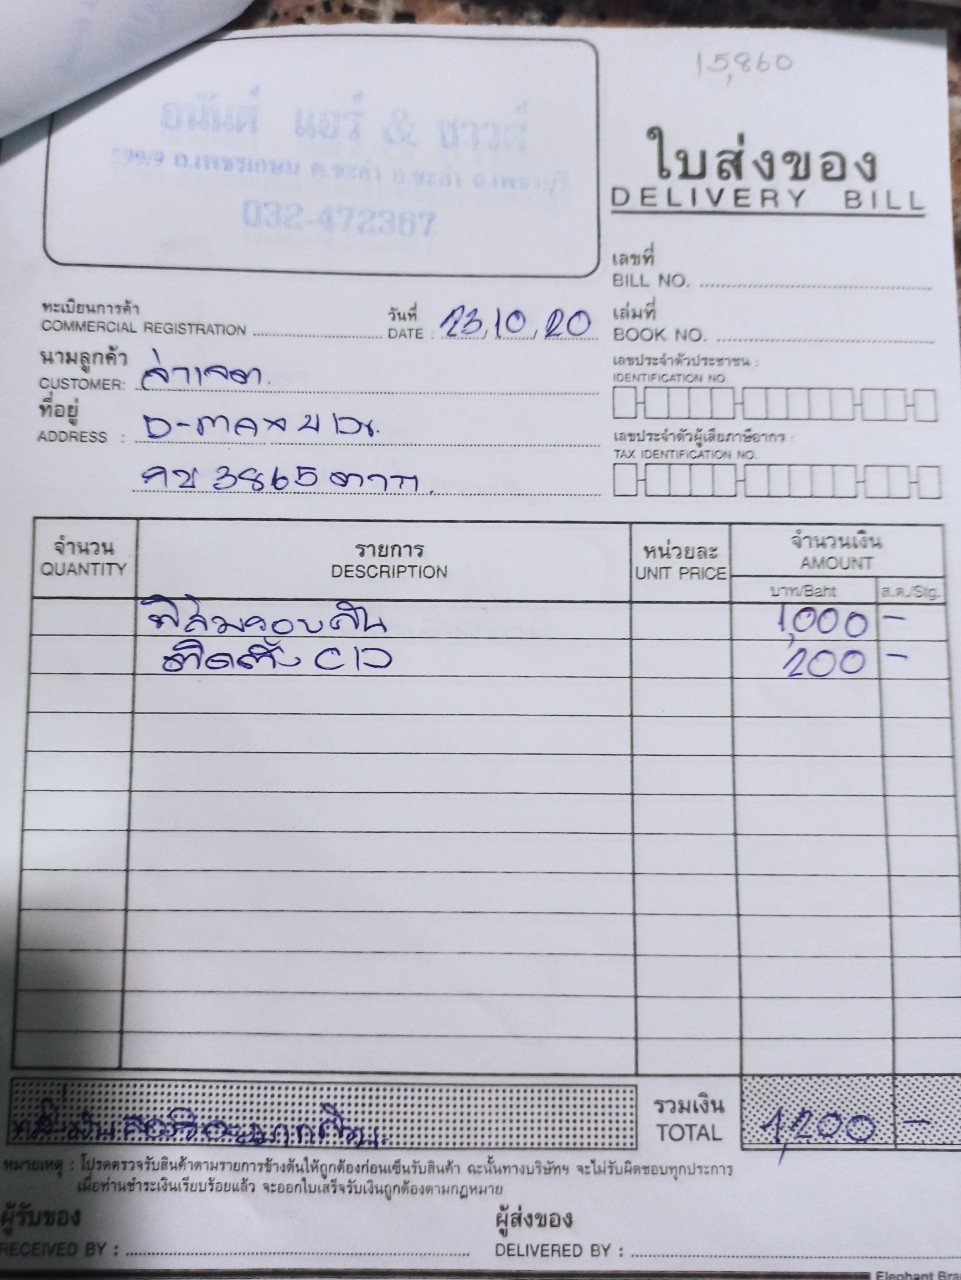 15,860
อนันต์ แอร์ & ซาวด์
599/9 ถ.เพชรเกษม ต.ชะอำ อ.ชะอำ จ.เพชรบุรี
032-472367
ใบส่งของ
DELIVERY BILL
เลขที่
BILL NO.
ทะเบียนการค้า
COMMERCIAL REGISTRATION
วันที่
DATE : 23,10,20
เล่มที่
BOOK NO.
นามลูกค้า
CUSTOMER:
เลขประจำตัวประชาชน :
IDENTIFICATION NO.
ที่อยู่
ADDRESS :
เลขประจำตัวผู้เสียภาษีอากร :
TAX IDENTIFICATION NO.
3865
จำนวน
QUANTITY
รายการ
DESCRIPTION
หน่วยละ
UNIT PRICE
จำนวนเงิน
AMOUNT
บาท/Baht
ส.ต./Stg.
ฟิล์มรอบคัน 1,000 –
ติดตั้ง 200 –
รวมเงิน
TOTAL
1,200 –
หมายเหตุ : โปรดตรวจรับสินค้าตามรายการข้างต้นให้ถูกต้องก่อนเซ็นรับสินค้า ฉะนั้นทางบริษัทฯ จะไม่รับผิดชอบทุกประการ
เมื่อท่านชำระเงินเรียบร้อยแล้ว จะออกใบเสร็จรับเงินถูกต้องตามกฎหมาย
ผู้รับของ
RECEIVED BY :
ผู้ส่งของ
DELIVERED BY :
Elephant Bra